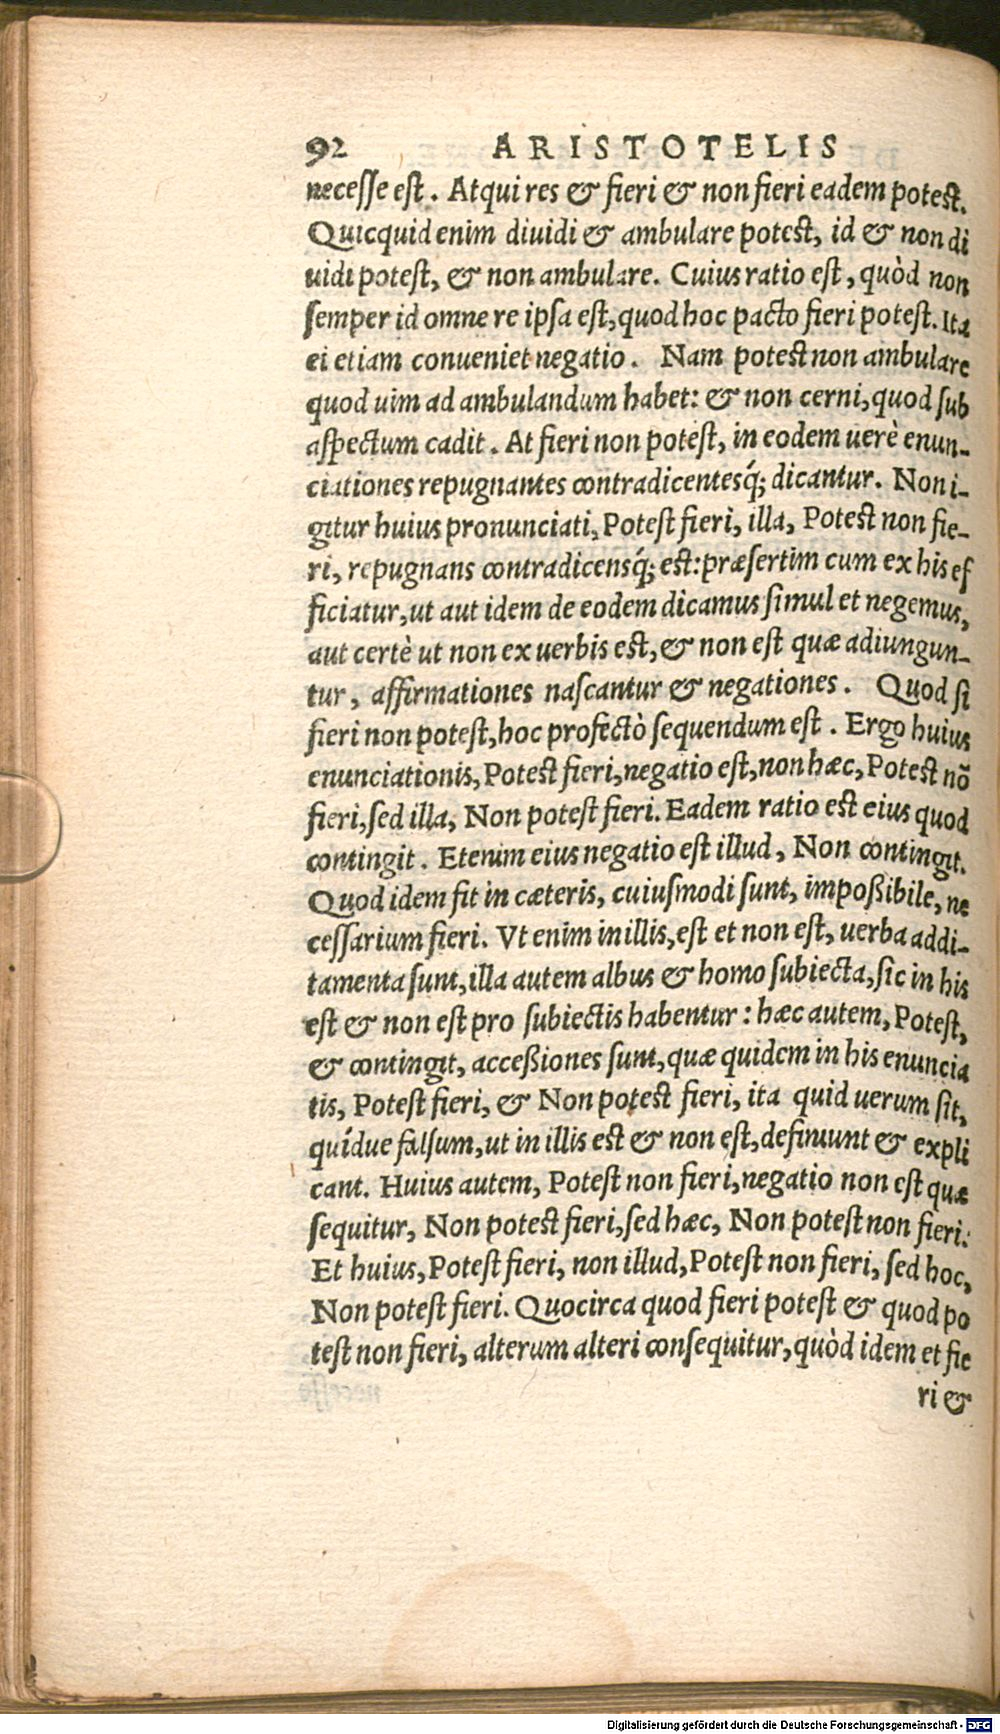 92 ARISTOTELIS
necesse est. Atqui res & fieri & non fieri eadem potest.
Quicquid enim diuidi & ambulare potest, id & non di
uidi potest, & non ambulare. Cuius ratio est, quòd non
semper id omne re ipsa est, quod hoc pacto fieri potest. Ita
ei etiam conueniet negatio. Nam potest non ambulare
quod uim ad ambulandum habet: & non cerni, quod sub
aspectum cadit. At fieri non potest, in eodem uerè enun-
ciationes repugnantes contradicentesq́; dicantur. Non i-
gitur huius pronunciati, Potest fieri, illa, Potest non fie-
ri, repugnans contradicensq́; est: præsertim cum ex his ef
ficiatur, ut aut idem de eodem dicamus simul et negemus,
aut certè ut non ex uerbis est, & non est quæ adiungun-
tur, affirmationes nascantur & negationes. Quod si
fieri non potest, hoc profectò sequendum est. Ergo huius
enunciationis, Potest fieri, negatio est, non hæc, Potest nõ
fieri, sed illa, Non potest fieri. Eadem ratio est eius quod
contingit. Etenim eius negatio est illud, Non contingit.
Quod idem fit in cæteris, cuiusmodi sunt, impoßibile, ne
cessarium fieri. Vt enim in illis, est et non est, uerba addi-
tamenta sunt, illa autem albus & homo subiecta, sic in his
est & non est pro subiectis habentur: hæc autem, Potest,
& contingit, acceßiones sunt, quæ quidem in his enuncia
tis, Potest fieri, & Non potest fieri, ita quid uerum sit,
quídue falsum, ut in illis est & non est, definiunt & expli
cant. Huius autem, Potest non fieri, negatio non est quæ
sequitur, Non potest fieri, sed hæc, Non potest non fieri:
Et huius, Potest fieri, non illud, Potest non fieri, sed hoc,
Non potest fieri. Quocirca quod fieri potest & quod po
test non fieri, alterum alteri consequitur, quòd idem et fie
ri &
Digitalisierung gefördert durch die Deutsche Forschungsgemeinschaft - DFG